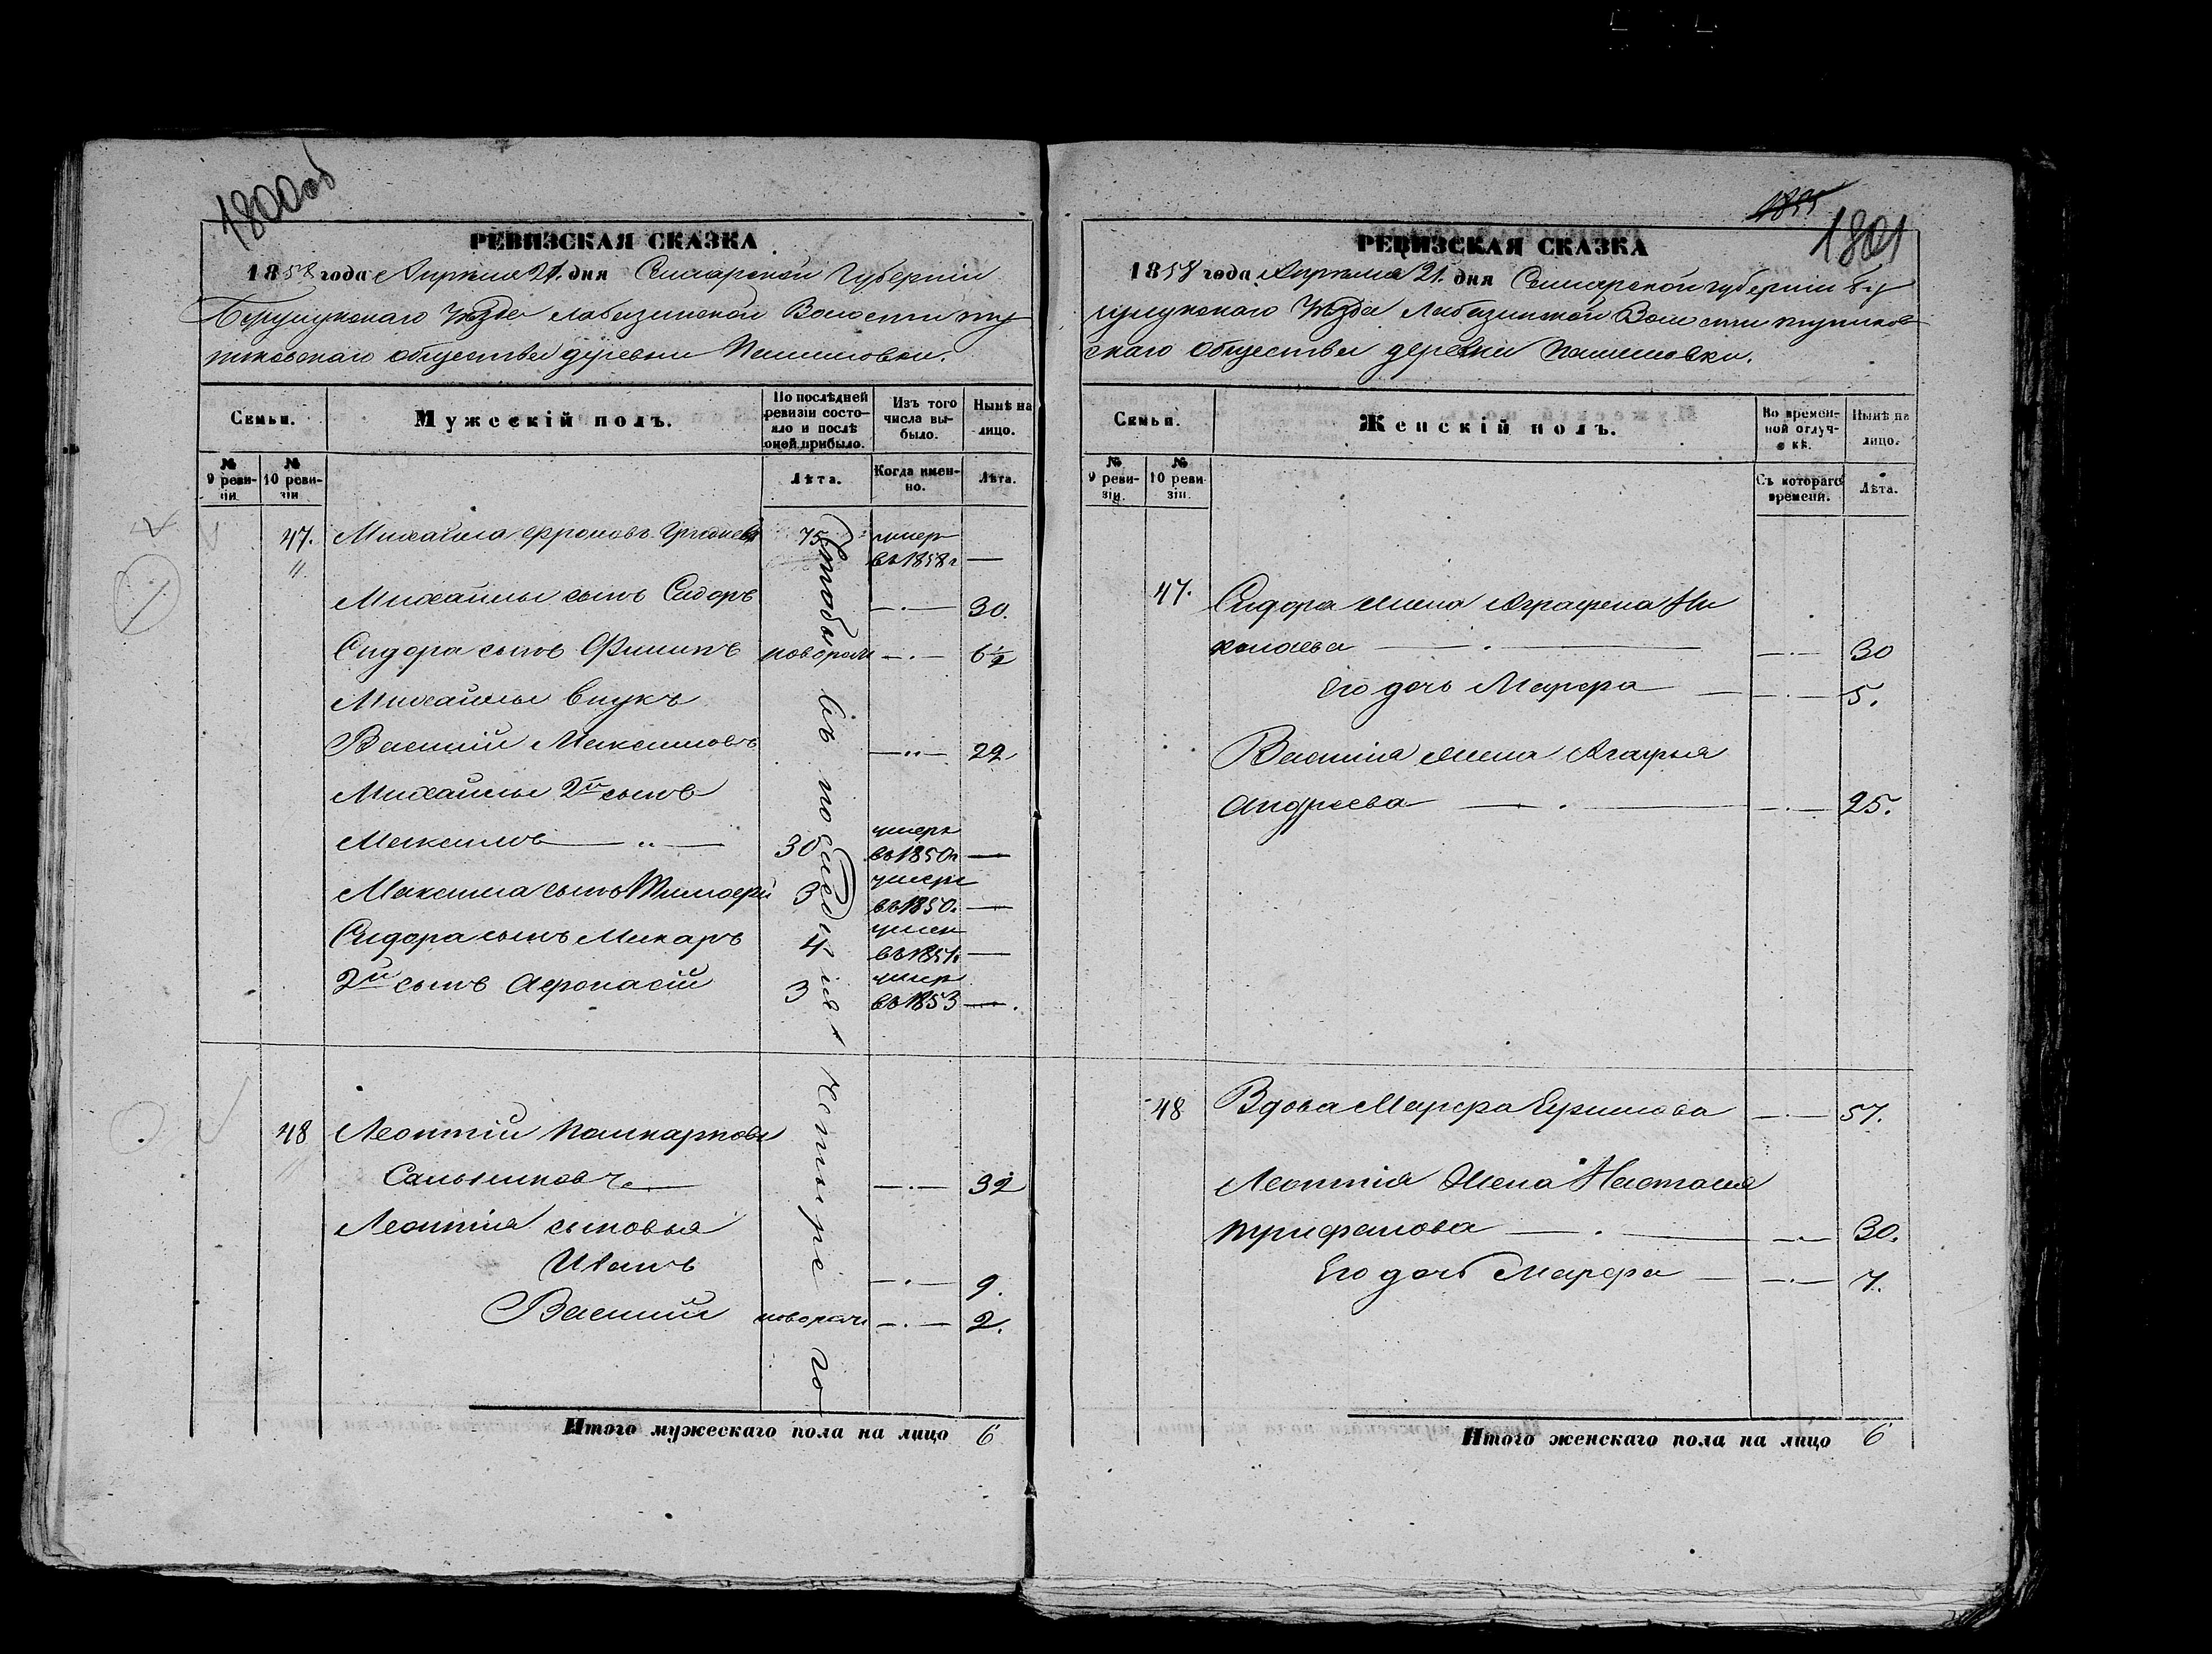 1800об
РЕВИЗСКАЯ СКАЗКА
1858 года Апреля 21. дня Самарской Губерніи
Бузулукскаго Уѣзда Лабазинской Волости
общества деревни
Семьи.
Мужескій полъ.
По послѣдней ревизіи состояло и послѣ оной прибыло.
Изъ того числа выбыло.
Нынѣ на лицо.
№ 9 ревизіи
№ 10 ревизіи
Лѣта.
Когда именно.
Лѣта.
47. Михайла 75 умер
въ 1858 г —
Михайлы сынъ Сидоръ —.— 30.
Сидора сынъ Филипъ поворож —.— 6½
Михайлы внукъ
Василій Максимовъ —..— 22
Михайлы 2й сынъ
Максимъ — .. — 30 умеръ въ 1850 г —
Максима сынъ Тимофей 3 умеръ въ 1850. —
Сидора сынъ Макаръ 4 умер въ 1851 г —
2й сынъ Афонасій 3 умер въ 1853 —.
48 Леонтій
—.— 32
Леонтія сыновья
Иванъ —.— 9.
Василій новорож —.— 2.
Итого мужескаго пола на лицо 6
1801
РЕВИЗСКАЯ СКАЗКА
1858 года Апреля 21. дня Самарской губерніи Бу
зулукскаго Уѣзда Лабазинской Волости
скаго общества деревни
Семьи.
Женскій полъ.
Во временной отлучкѣ.
Нынѣ на лицо.
№ 9 ревизіи.
№ 10 ревизіи.
Съ котораго времени.
Лѣта.
47. Сидора жена Аграфена Ни
колаева — . — —.— 30
Его дочь Марфа — —.— 5.
Василія жена Агафья
Андреева — . — —.— 25.
48 Вдова Марфа Ефимова —.— 57.
Леонтія Жена Настасия
Трифанова — . — —.— 30.
Его дочь Марфа — —.— 7.
Итого женскаго пола на лицо 6